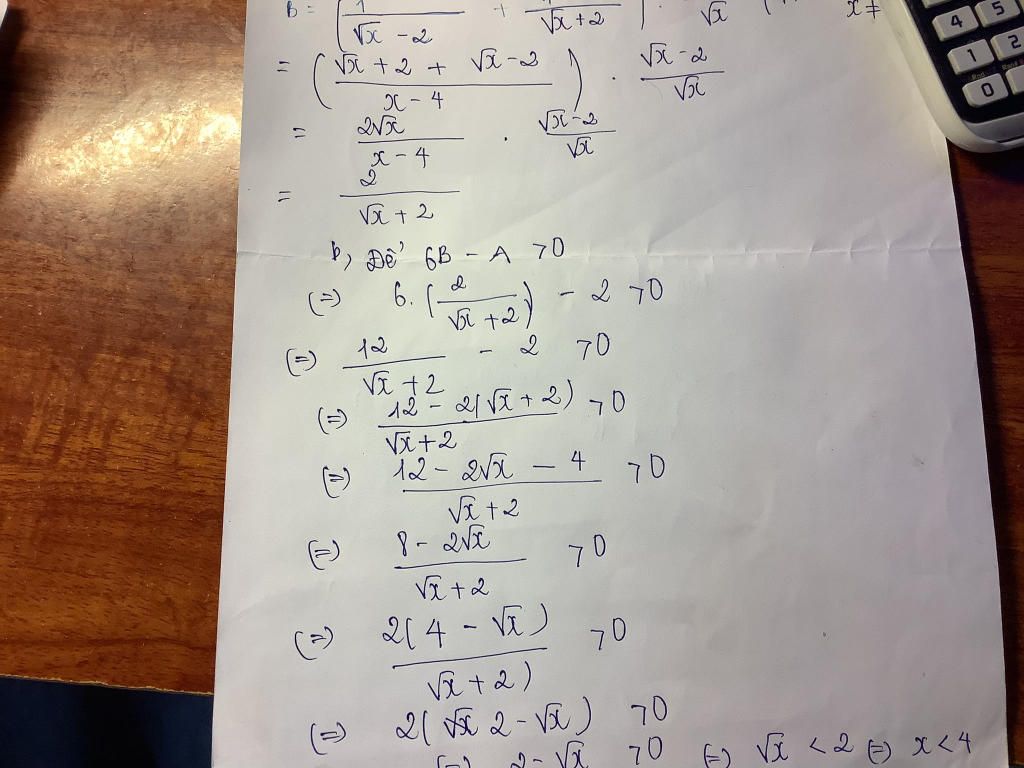 B = ( 1/(√x - 2) + 1/(√x + 2) ) · √x x ≠
= ( (√x + 2 + √x - 2)/(x - 4) ) · (√x - 2)/√x
= 2√x/(x - 4) · (√x - 2)/√x
= 2/(√x + 2)
b, Để 6B - A > 0
(=) 6. (2/(√x + 2)) - 2 > 0
(=) 12/(√x + 2) - 2 > 0
(=) (12 - 2(√x + 2))/(√x + 2) > 0
(=) (12 - 2√x - 4)/(√x + 2) > 0
(=) (8 - 2√x)/(√x + 2) > 0
(=) 2(4 - √x)/(√x + 2) > 0
(=) 2(√x 2 - √x) > 0
(=) 2 - √x > 0 (=) √x < 2 (=) x < 4
4 5
1 2
0